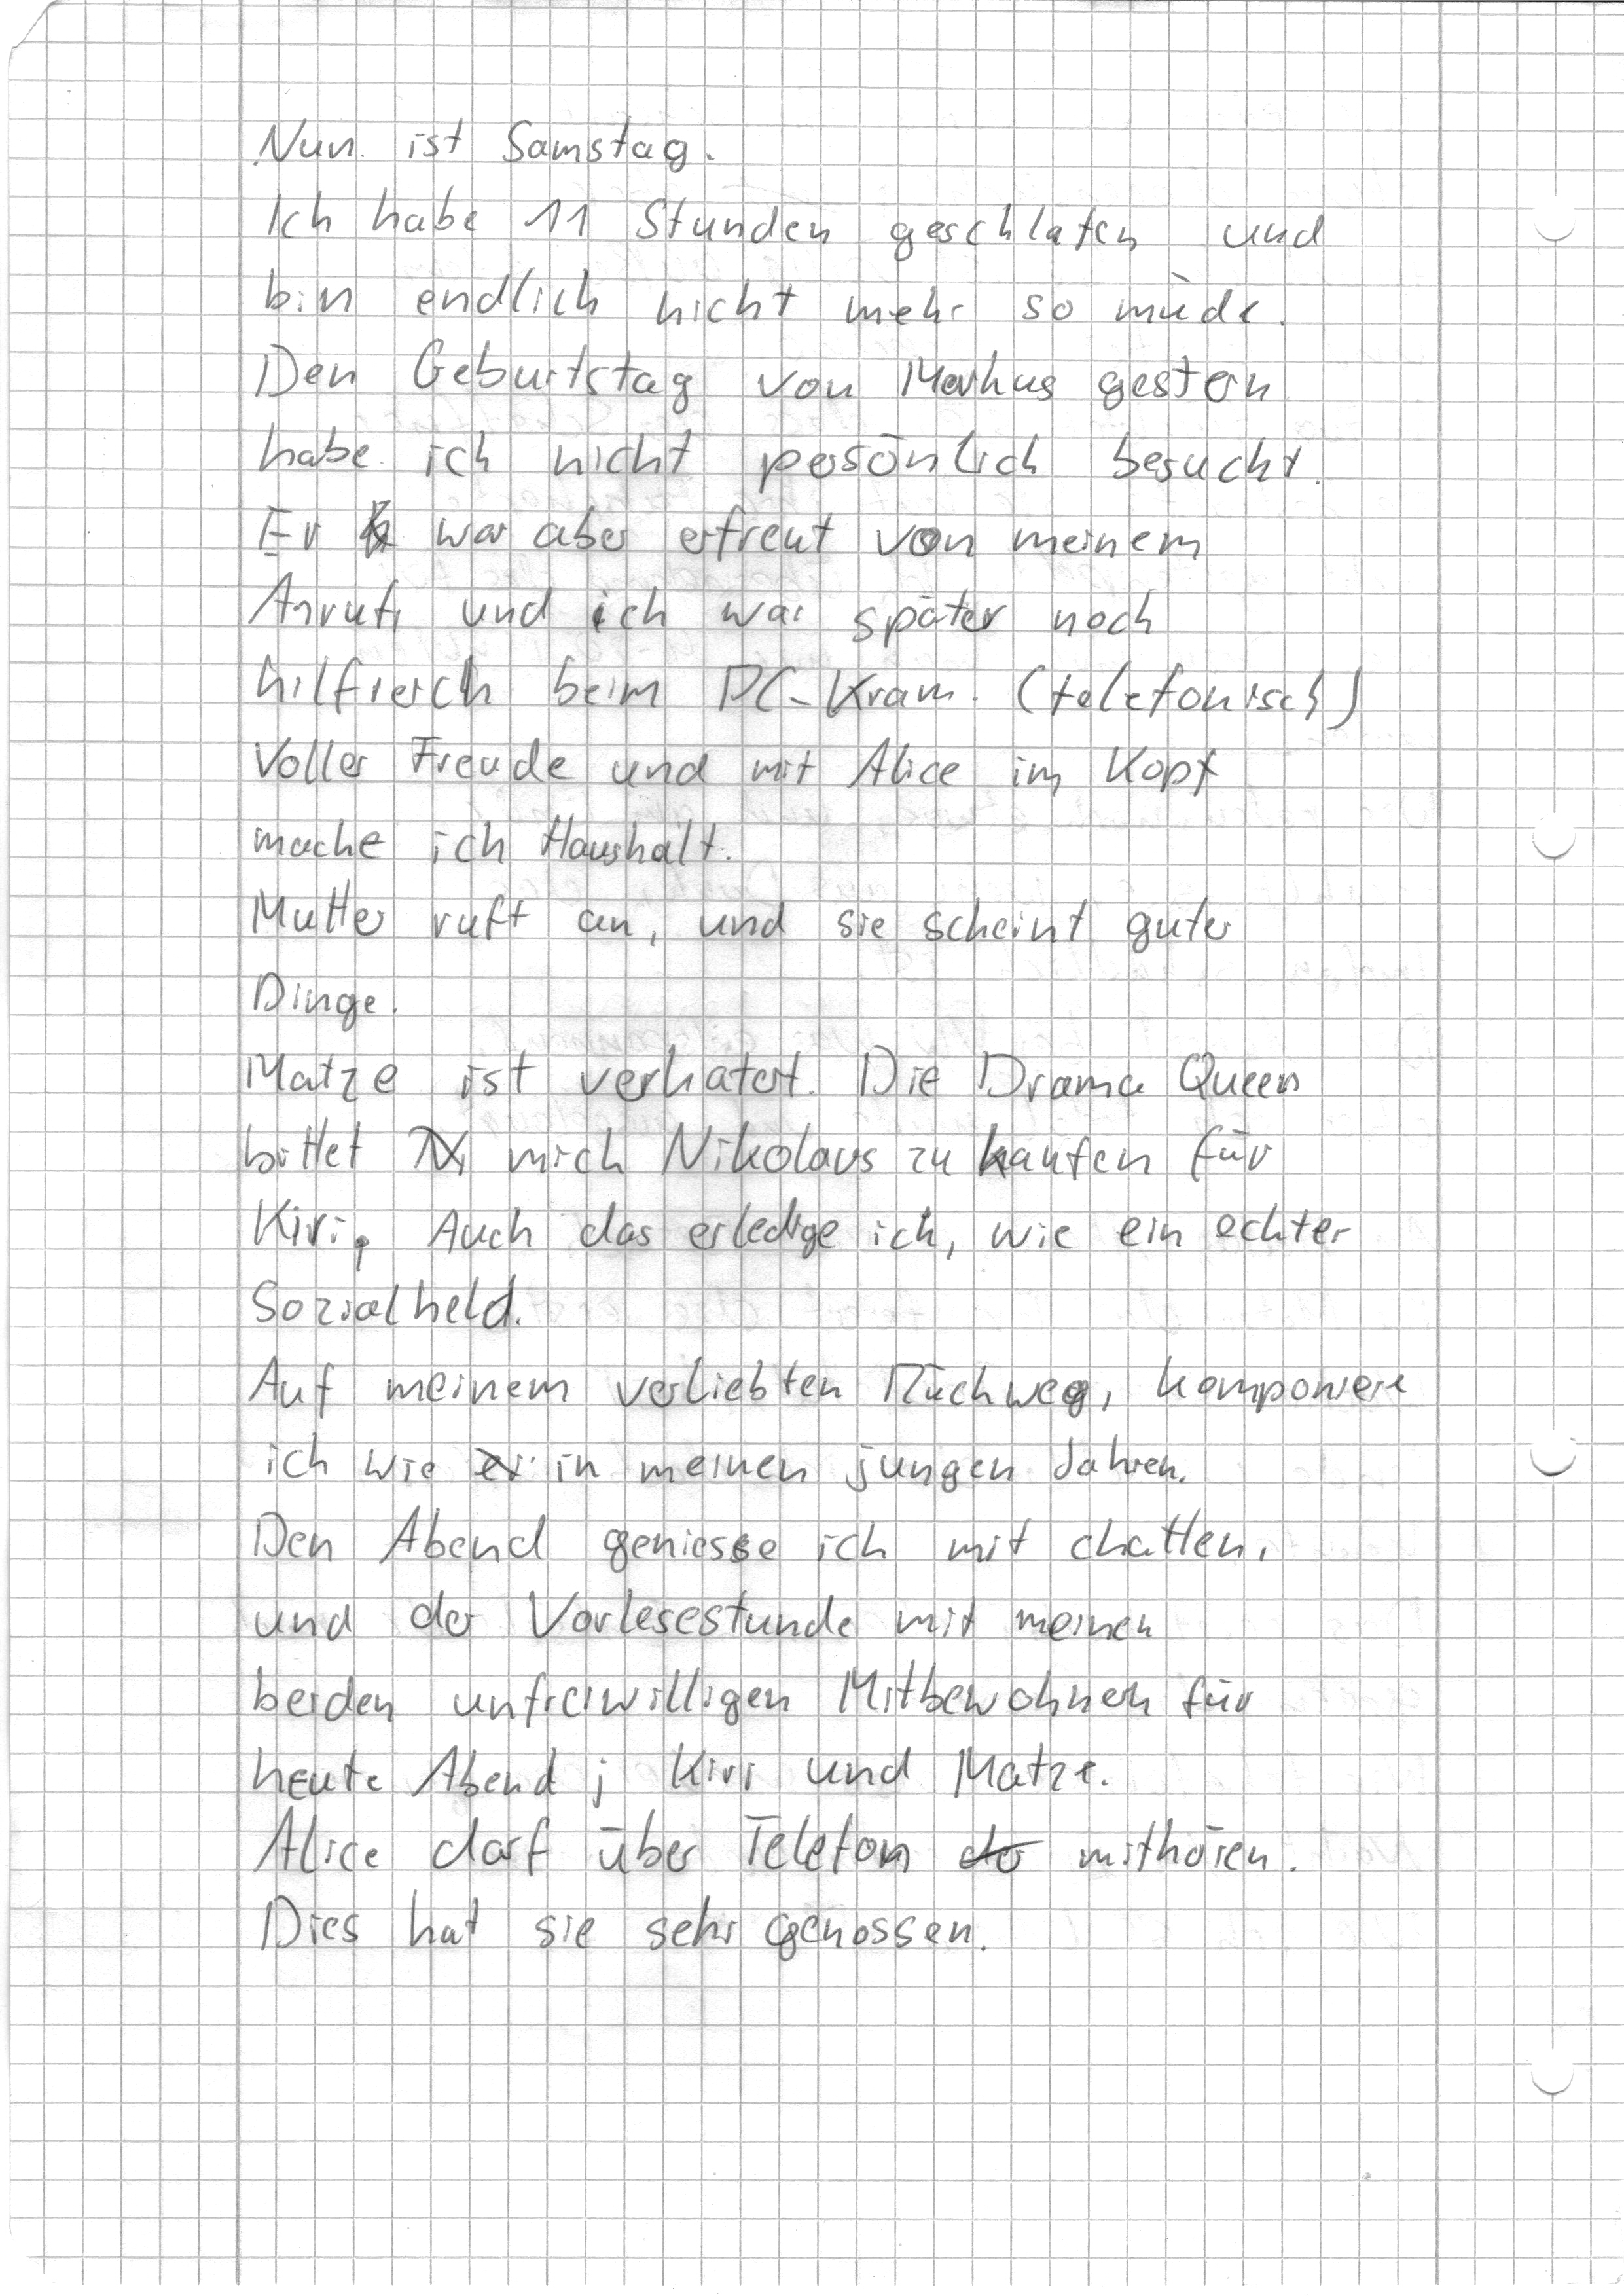 Nun ist Samstag.
Ich habe 11 Stunden geschlafen und
bin endlich nicht mehr so müde.
Den Geburtstag von Markus gestern
habe ich nicht persönlich besucht.
Er war aber erfreut von meinem
Anruf, und ich war später noch
hilfreich beim PC-Kram. (telefonisch)
Voller Freude und mit Alice im Kopf
mache ich Haushalt.
Mutter ruft an, und sie scheint guter
Dinge.
Matze ist verkatert. Die Drama Queen
bittet mich Nikolaus zu kaufen für
Kiri. Auch das erledige ich, wie ein echter
Sozialheld.
Auf meinem verliebten Rückweg, komponiere
ich wie in meinen jungen Jahren.
Den Abend geniesse ich mit chatten,
und der Vorlesestunde mit meinen
beiden unfreiwilligen Mitbewohnern für
heute Abend; Kiri und Matze.
Alice darf über Telefon mithören.
Dies hat sie sehr genossen.